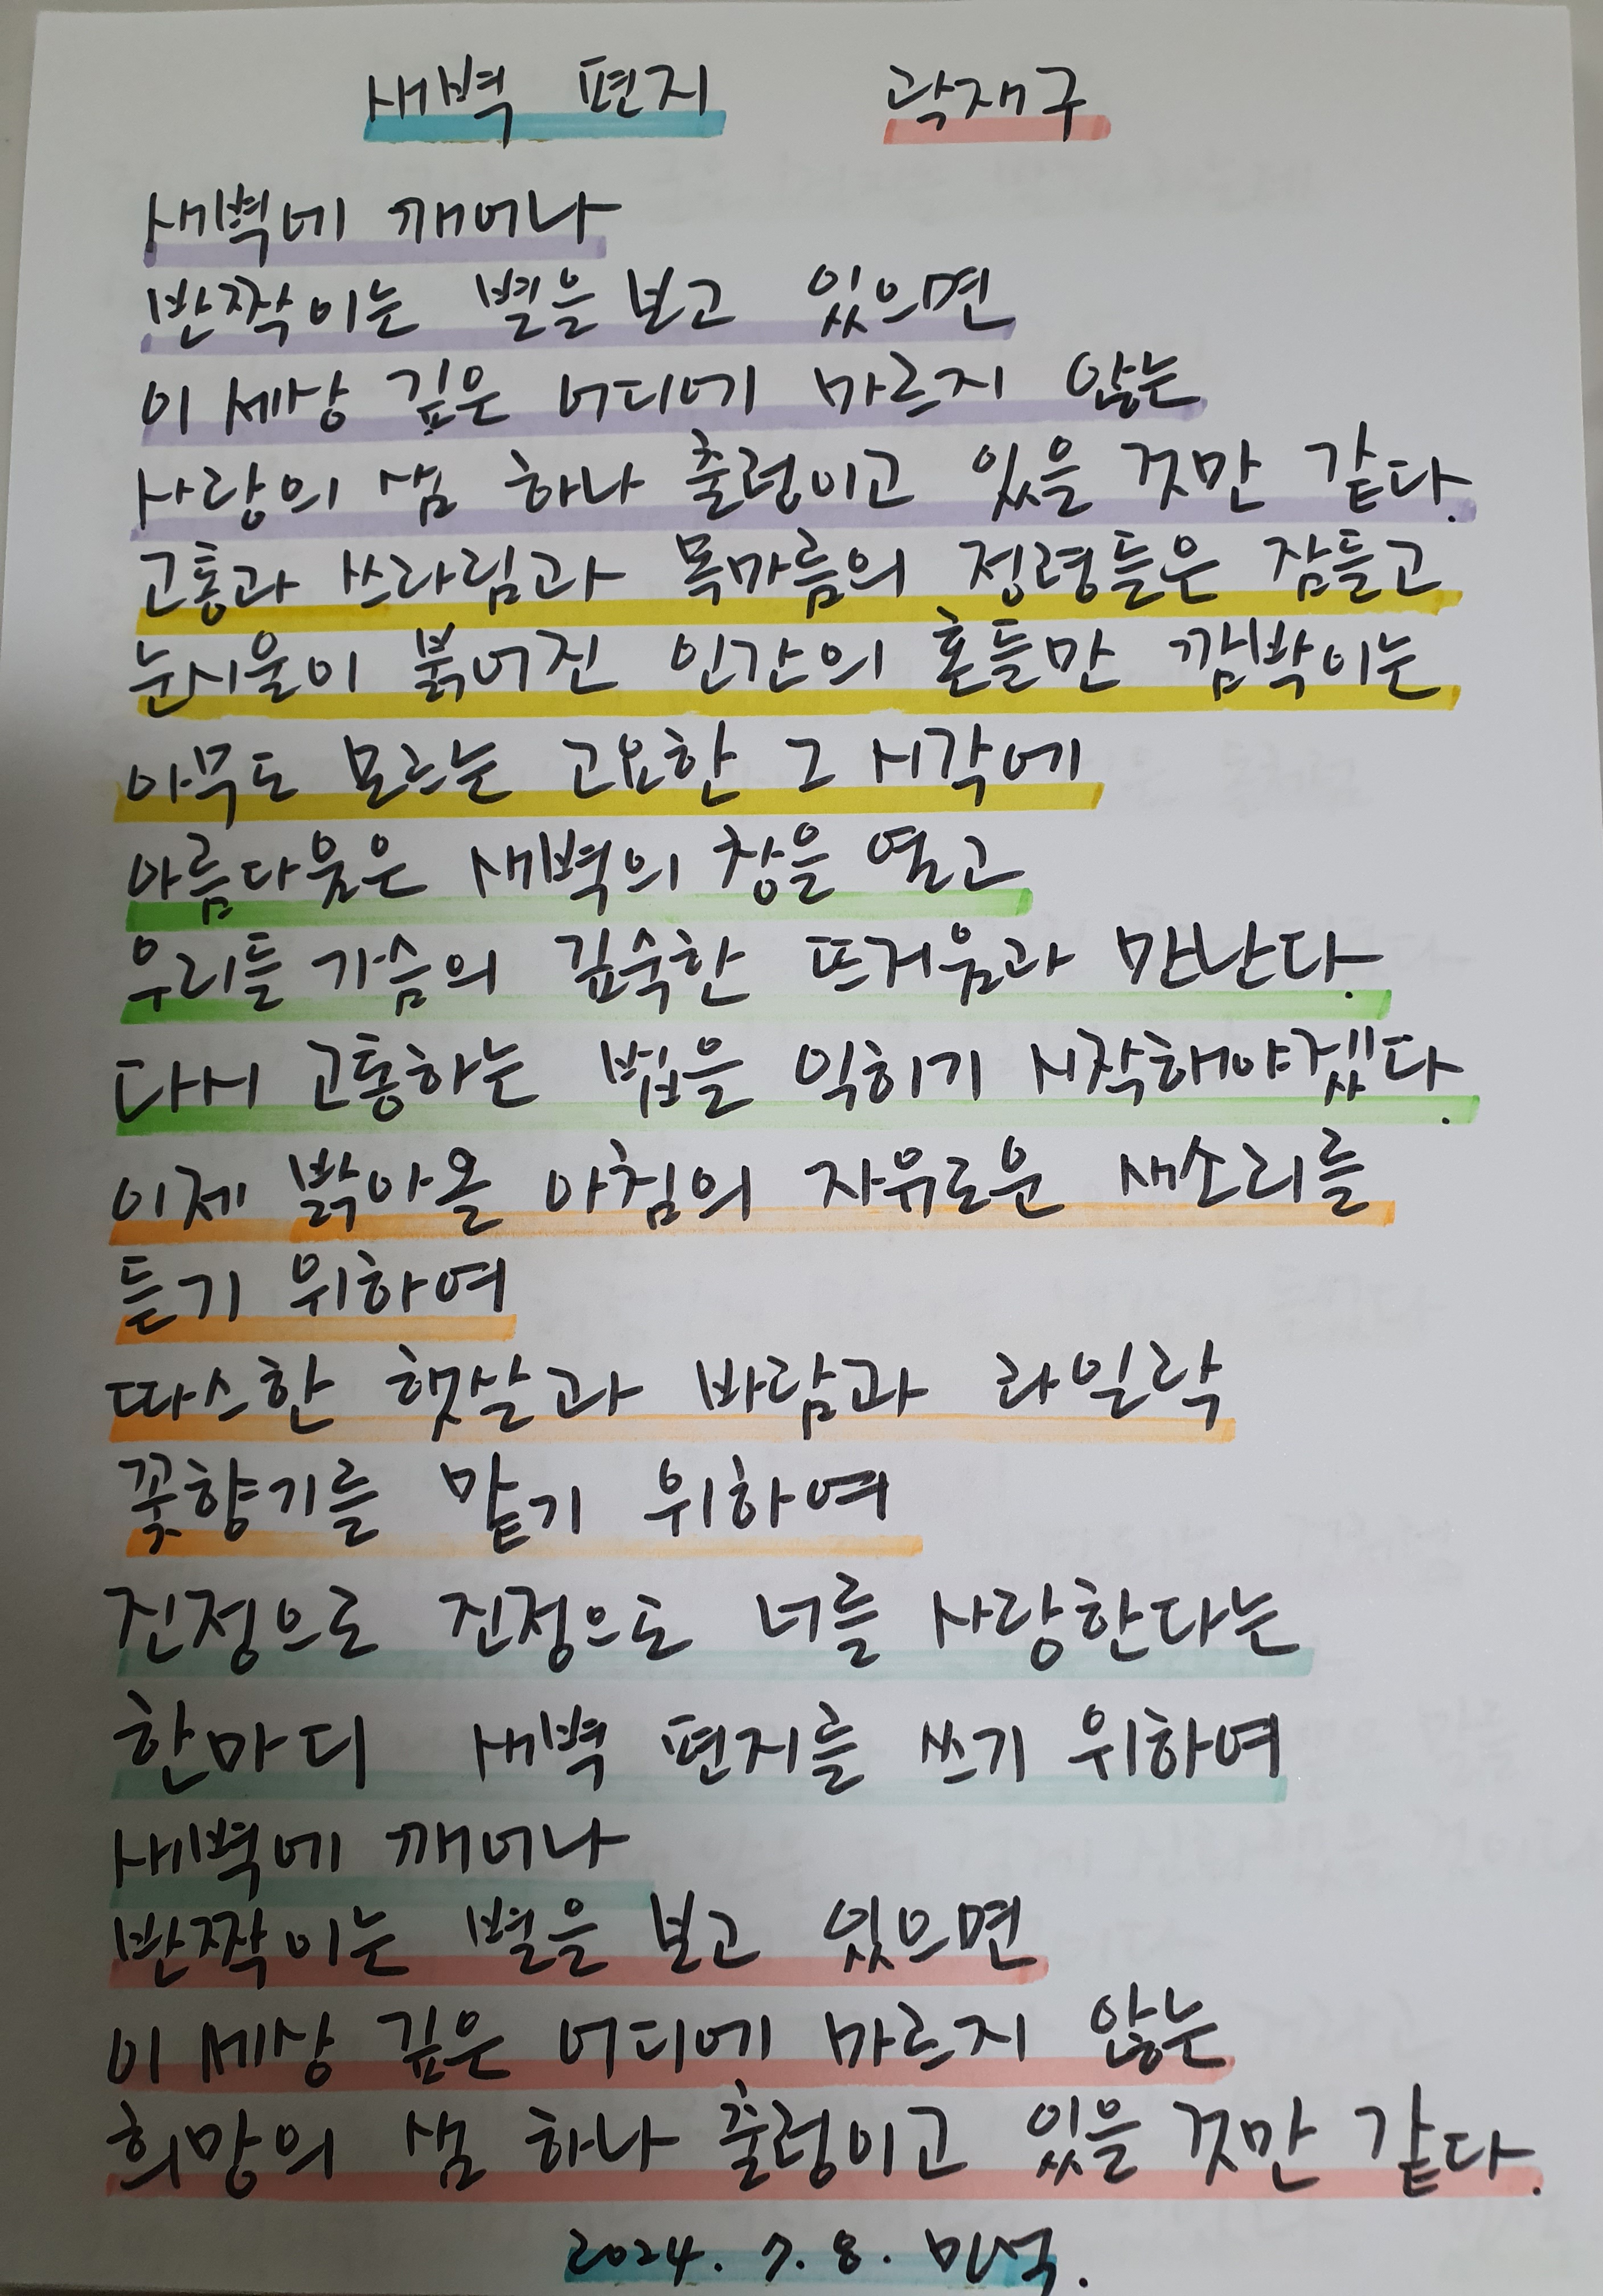 새벽 편지 곽재구
새벽에 깨어나
반짝이는 별을 보고 있으면
이 세상 깊은 어디에 마르지 않는
사랑의 샘 하나 출렁이고 있을 것만 같다.
고통과 쓰라림과 목마름의 정령들은 잠들고
눈시울이 붉어진 인간의 혼들만 깜박이는
아무도 모르는 고요한 그 시각에
아름다웃은 새벽의 창을 열고
우리들 가슴의 깊숙한 뜨거움과 만난다.
다시 고통하는 법을 익히기 시작해야겠다.
이제 밝아올 아침의 자유로운 새소리를
듣기 위하여
따스한 햇살과 바람과 라일락
꽃향기를 맡기 위하여
진정으로 진정으로 너를 사랑한다는
한마디 새벽 편지를 쓰기 위하여
새벽에 깨어나
반짝이는 별을 보고 있으면
이 세상 깊은 어디에 마르지 않는
희망의 샘 하나 출렁이고 있을 것만 같다.
2024. 7. 8. 민석.